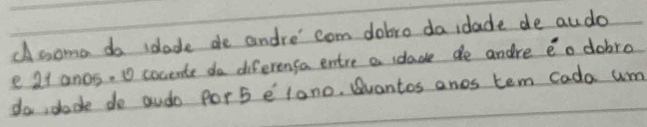 A soma da idade de andré com dobro da idade de audo
e 21 anos. O cociente da diferença entre a idade de andre é o dobro
da idade de audo por 5 é 1 ano. Quantos anos tem cada um